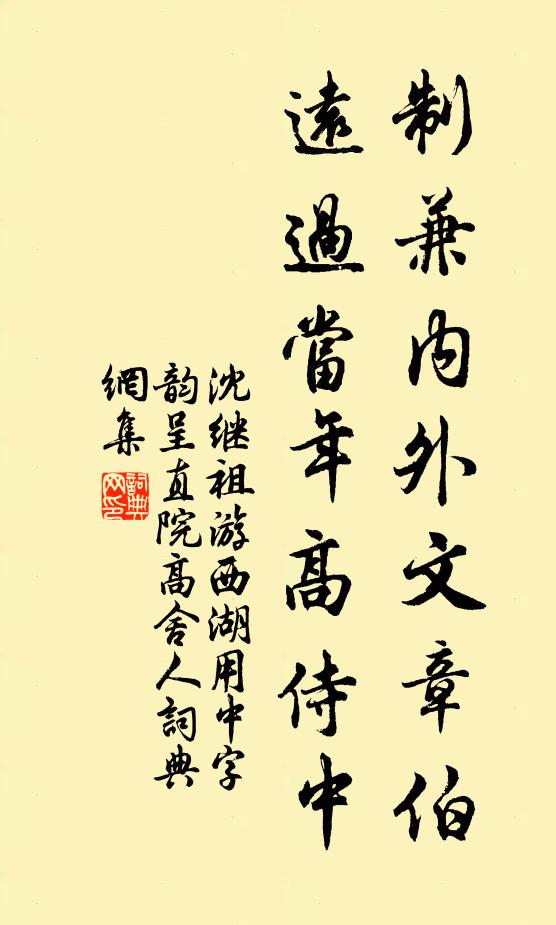 制兼内外文章伯
遠過當年高侍中
沈继祖游西湖用中字
韵呈直院高舍人詞典
網集
詞典
网印